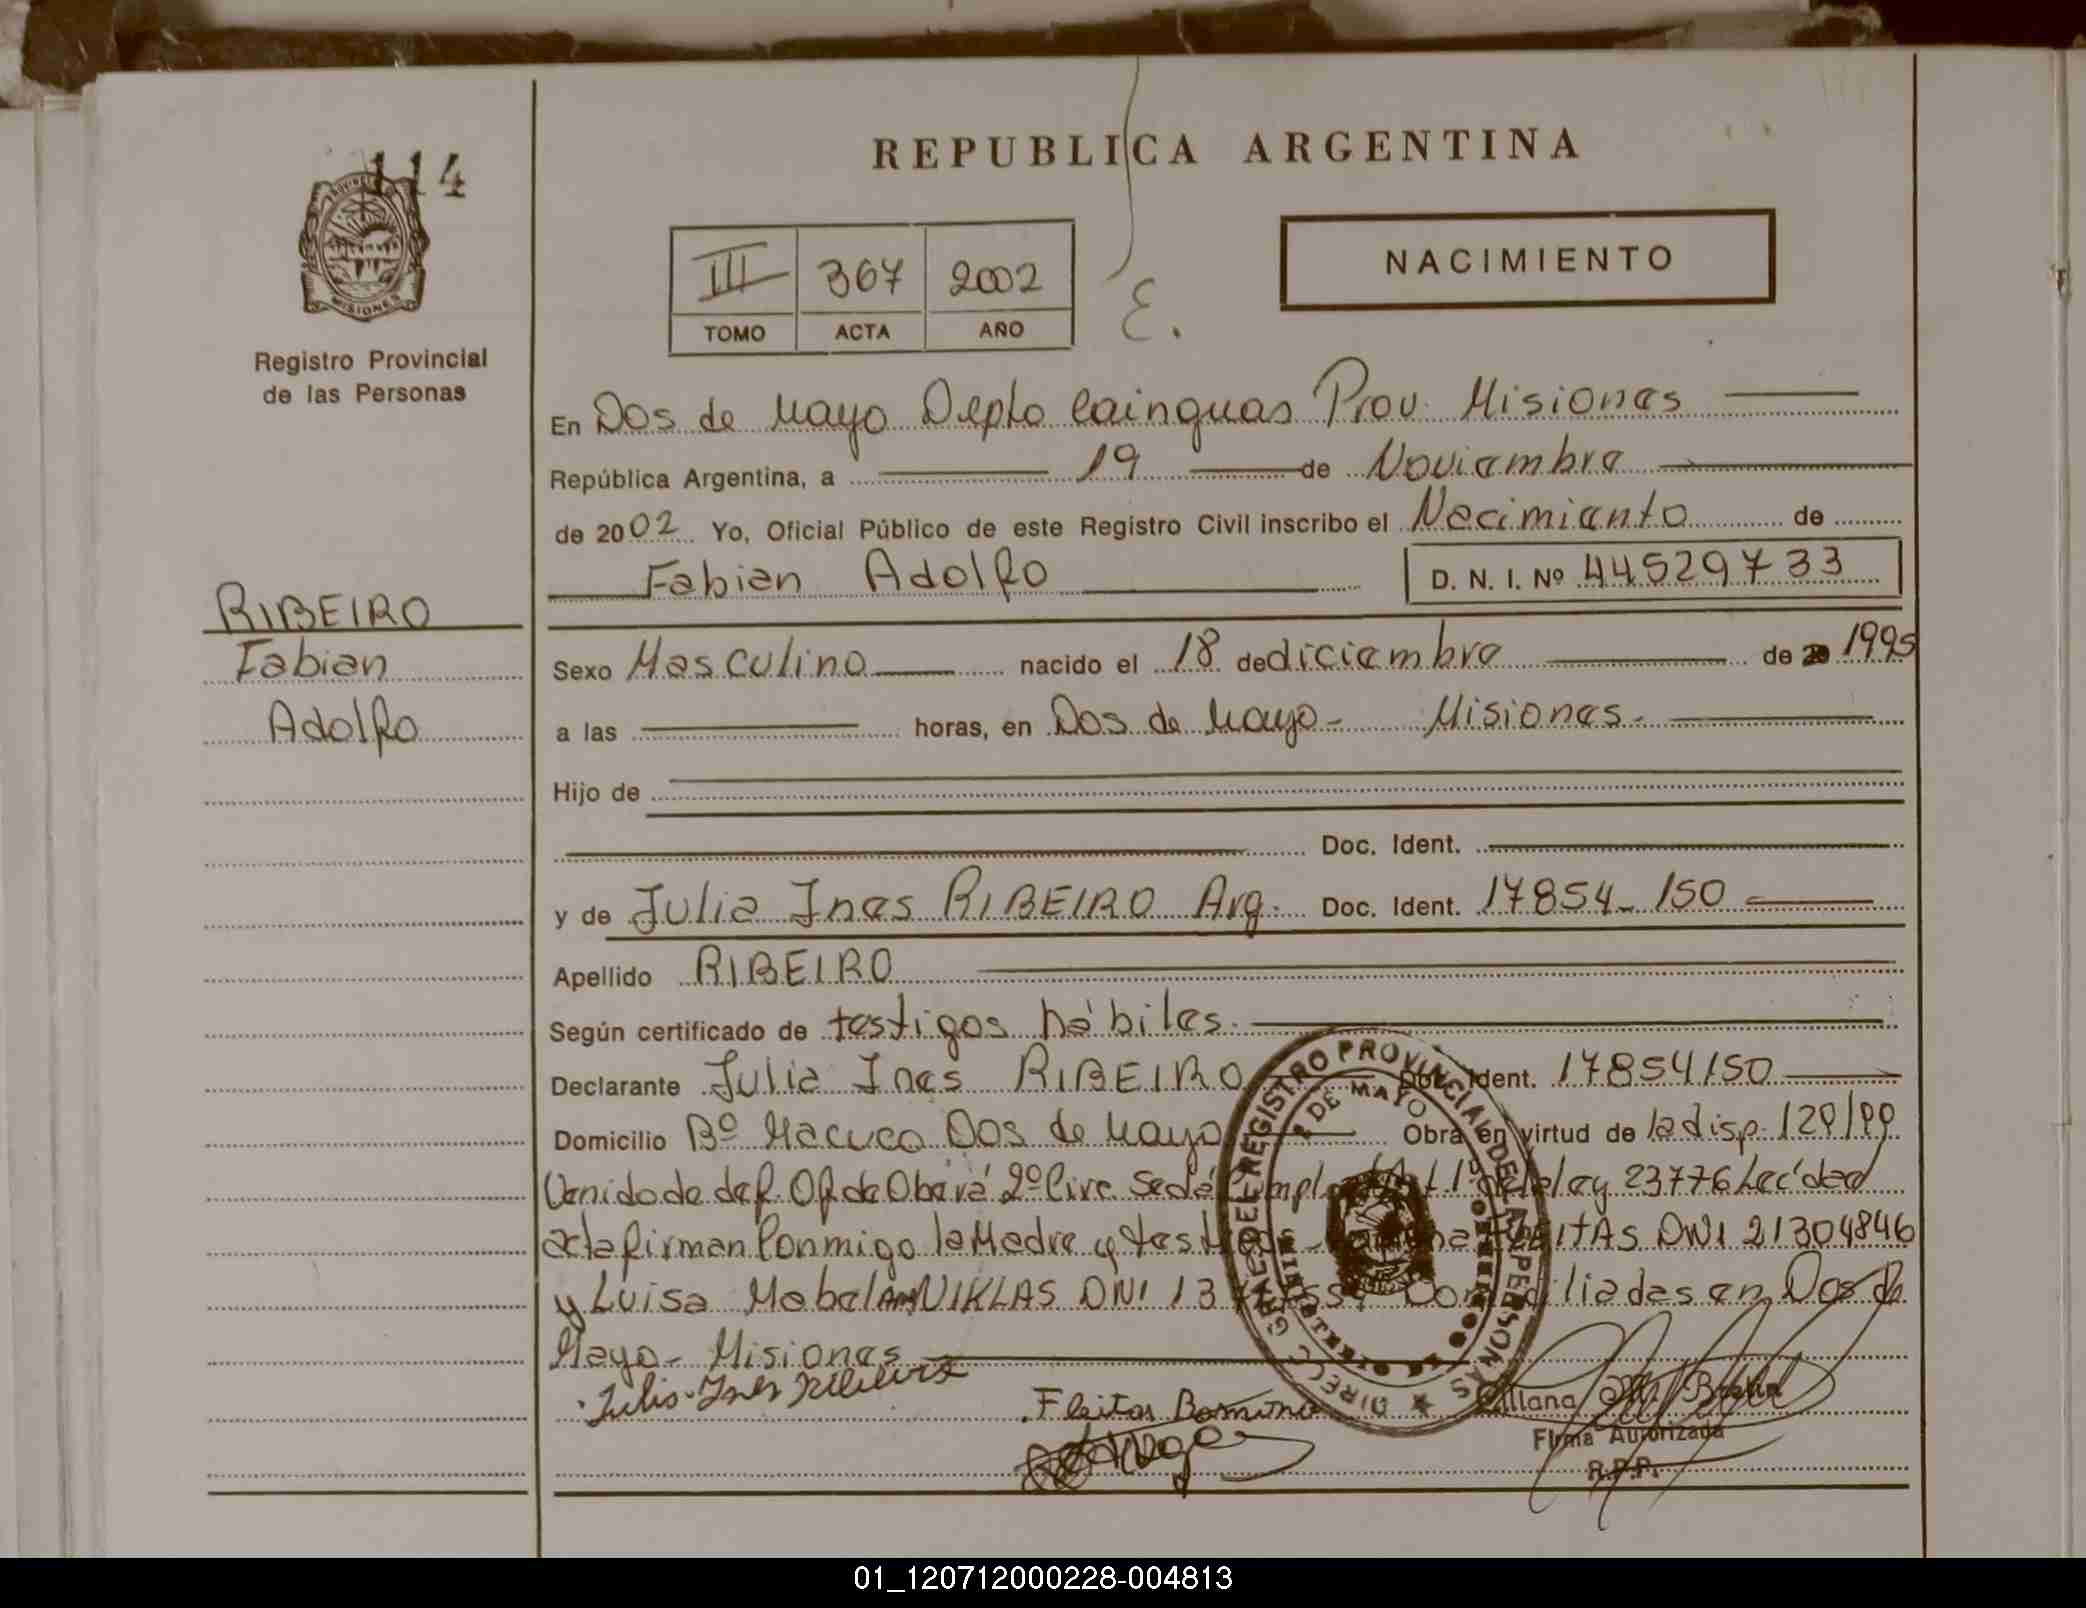 114
PROVINCIA
MISIONES
Registro Provincial
de las Personas
RIBEIRO
Fabian
Adolfo
REPUBLICA ARGENTINA
III 367 2002
TOMO ACTA AÑO
E.
NACIMIENTO
En Dos de Mayo Depto Cainguas Prov. Misiones
República Argentina, a 19 de Noviembre
de 2002 Yo, Oficial Público de este Registro Civil inscribo el Nacimiento de
Fabian Adolfo D. N. I. Nº 44529733
Sexo Masculino nacido el 18 de diciembre de 1995
a las horas, en Dos de Mayo - Misiones.
Hijo de
Doc. Ident.
y de Julia Ines RIBEIRO Arg. Doc. Ident. 17854-150
Apellido RIBEIRO
Según certificado de testigos hábiles.
Declarante Julia Ines RIBEIRO Doc. Ident. 17854150
Domicilio Bº Macuco Dos de Mayo Obra en virtud de la disp.
de Oberá 2º Circ. Ley 23776 Leída el
acta firman Conmigo la Madre y testigos DNI 21304846
y Luisa Mabel NIKLAS DNI 13 Domiciliadas en Dos de
Mayo - Misiones
Julia Ines Ribeiro
Fleitas
DIREC. GRAL. DEL REGISTRO PROVINCIAL DE LAS PERSONAS
DE MAYO
Firma Autorizada
R.P.P.
01_120712000228-004813